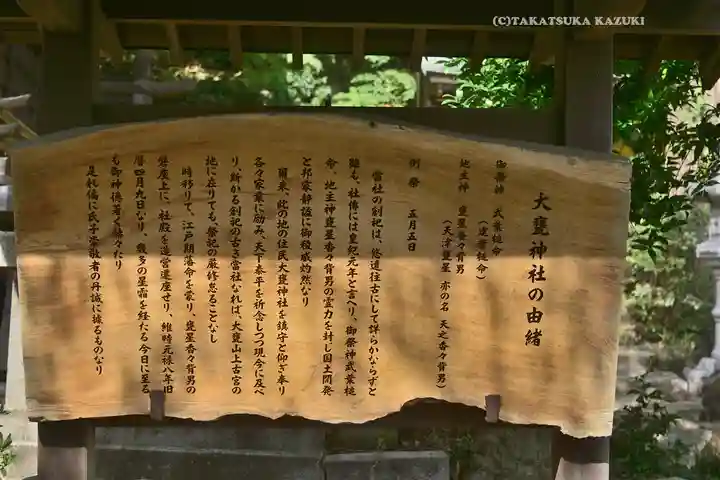 (C)TAKATSUKA KAZUKI
大甕神社の由緒
御祭神　武葉槌命
（建葉槌命）
地主神　甕星香々背男
（天津甕星　亦の名　天之香々背男）
例祭　五月五日
当社の創祀は、悠遠往古にして詳らかならずと
雖も、社傳には皇紀元年と言へり、御祭神武葉槌
命、地主神甕星香々背男の霊力を封じ国土開発
と邦家静謐に御稜威灼然なり
爾来、此の地の住民大甕神社を鎮守と仰ぎ奉り
各々家業に励み、天下泰平を祈念しつつ現今に及べ
り、斯かる創祀の古き当社なれば、大甕山上古宮の
地に在りても祭祀の厳修怠ることなし
時移りて、江戸期藩命を蒙り、甕星香々背男の
磐座上に、社殿を造営遷座せり、維時元禄八年旧
暦四月九日なり、幾多の星霜を経たる今日に至る
も御神徳著く赫々たり
是れ偏に氏子崇敬者の丹誠に據るものなり